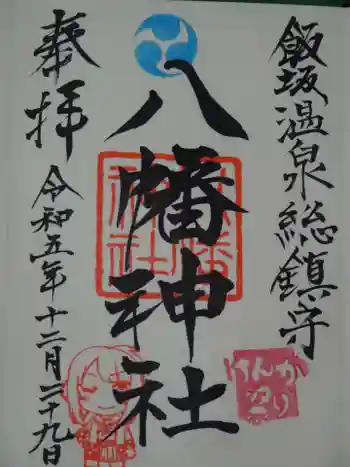 飯坂温泉総鎮守
八幡神社
奉拝
令和五年十二月二十九日
けんか
祭り